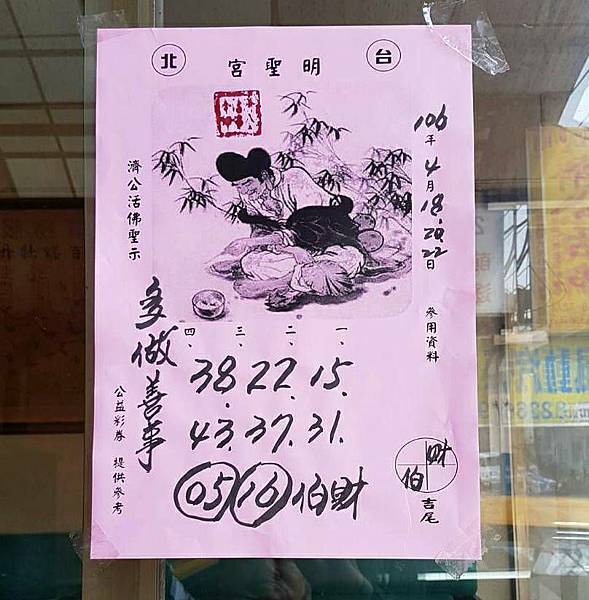 台北
明聖宮
106年4月18.20.22日
參用資料
濟公活佛聖示
多做善事
一、二、三、四、
38.22.15.
43.37.31.
05 16 伯財
財
伯
吉尾
公益彩券 提供參考